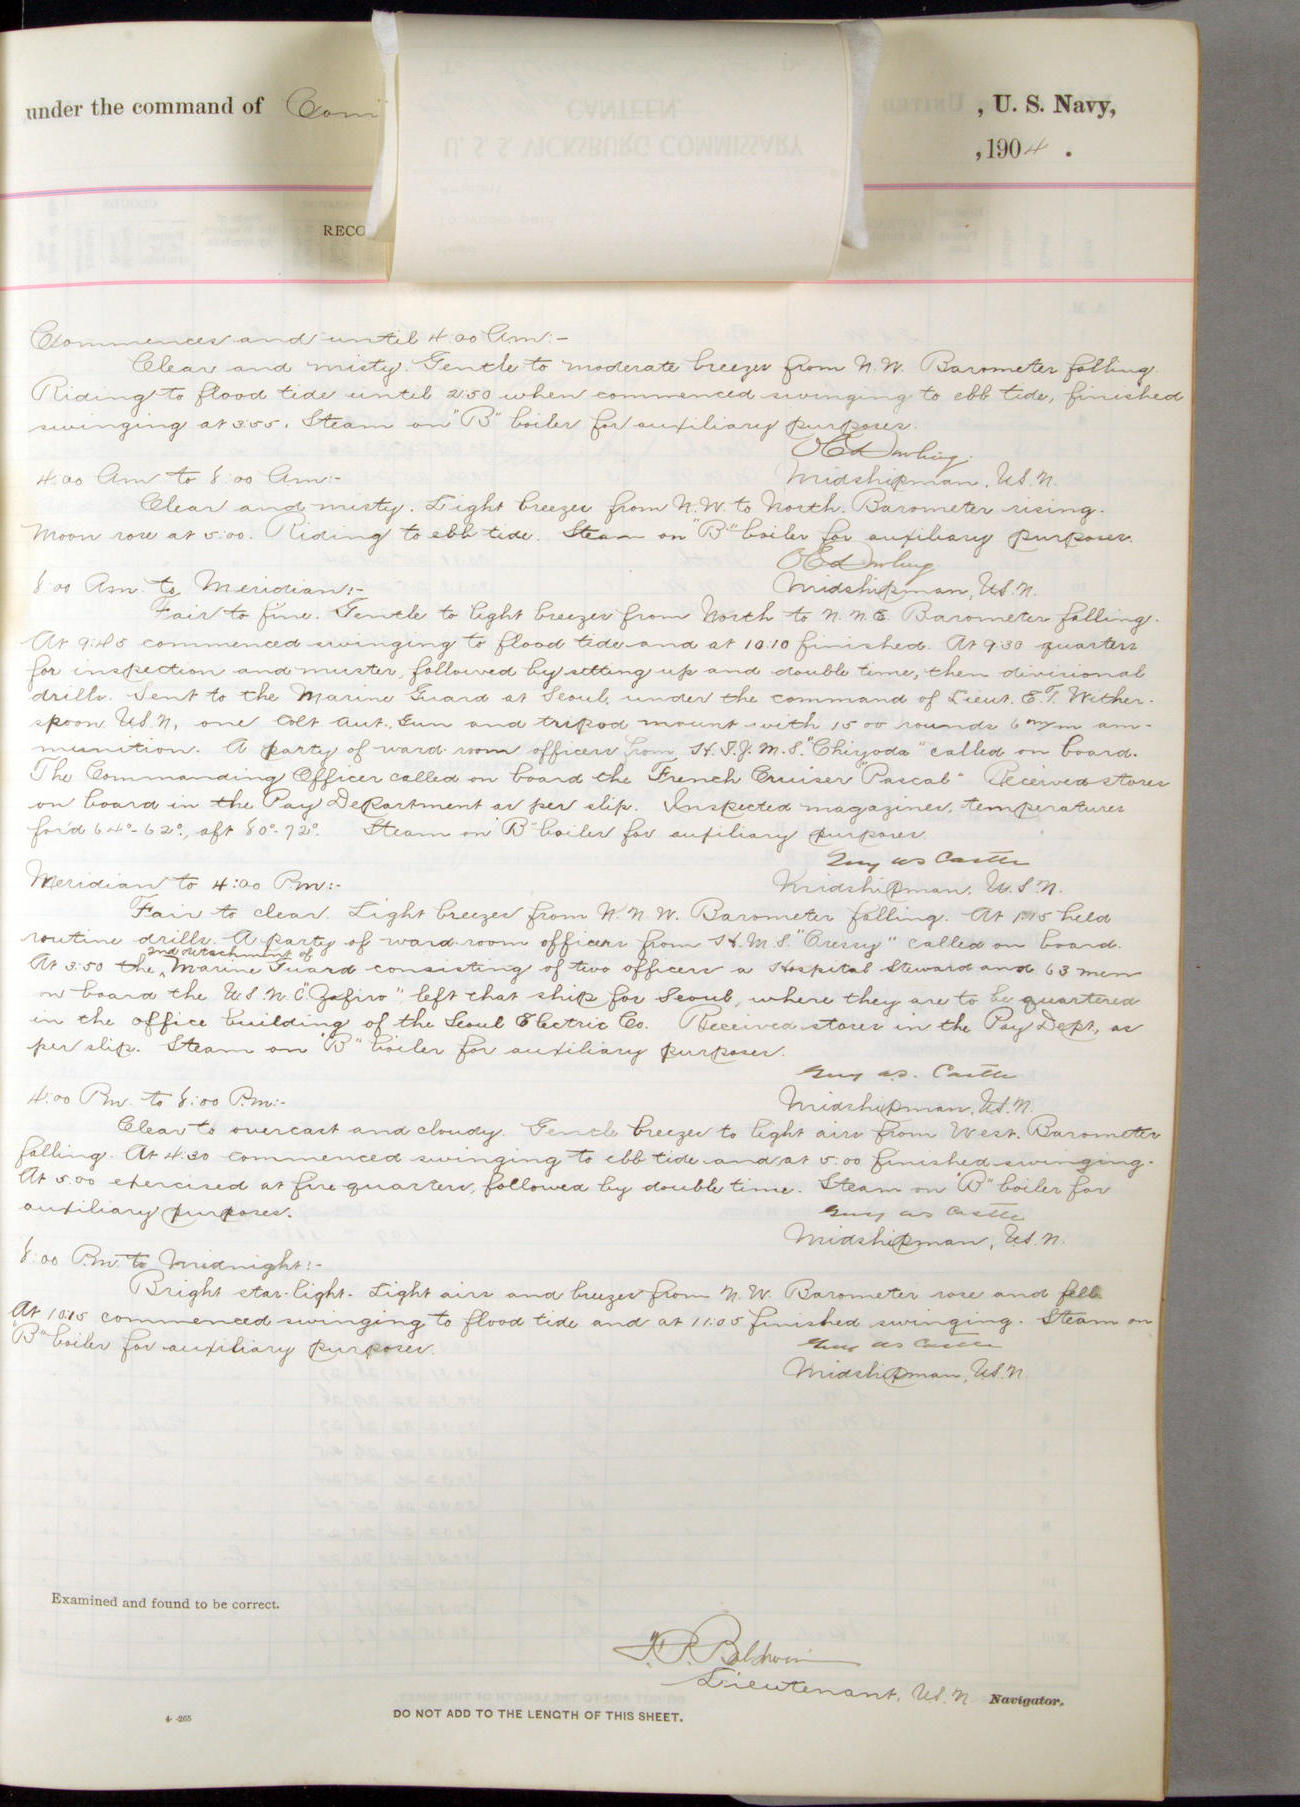 under the command of Com
, U. S. Navy,
, 1904 .
RECO
Commences and until 4:00 Am:-
Clear and misty. Gentle to moderate breezes from N.W. Barometer falling.
Riding to flood tide until 2:50 when commenced swinging to ebb tide, finished
swinging at 3:55. Steam on "B" boiler for auxiliary purposes.
Midshipman, U.S.N.
4:00 Am to 8:00 Am:-
Clear and misty. Light breezes from N.W. to North. Barometer rising.
Moon rose at 5:00. Riding to ebb tide. Steam on "B" boiler for auxiliary purposes.
Midshipman, U.S.N.
8:00 Am to Meridian:-
Fair to fine. Gentle to light breezes from North to N.N.E. Barometer falling.
At 9:45 commenced swinging to flood tide and at 10:10 finished. At 9:30 quarters
for inspection and muster, followed by setting up and double time, then divisional
drills. Sent to the Marine Guard at Seoul, under the command of Lieut. E.T. Wither-
spoon U.S.N., one Colt Aut. Gun and tripod mount with 1500 rounds 6 m/m am-
munition. A party of ward-room officers from H.I.J.M.S. "Chiyoda" called on board.
The Commanding Officer called on board the French Cruiser "Pascal" Received stores
on board in the Pay Department as per slip. Inspected magazines, temperatures
for'd 64°-62°, aft 80°-72°. Steam on "B" boiler for auxiliary purposes.
Guy W S Castle
Midshipman, U.S.N.
Meridian to 4:00 P.m:-
Fair to clear. Light breezes from N.N.W. Barometer falling. At 1:15 held
routine drills. A party of ward-room officers from H.M.S. "Cressy" called on board.
At 3:50 the 2nd detachment of Marine Guard consisting of two officers a Hospital Steward and 63 men
on board the U.S.N.C. "Zafiro" left that ship for Seoul, where they are to be quartered
in the office building of the Seoul Electric Co. Received stores in the Pay Dept, as
per slip. Steam on "B" boiler for auxiliary purposes.
Guy W S. Castle
Midshipman, U.S.N.
4:00 Pm. to 8:00 P.m:-
Clear to overcast and cloudy. Gentle breezes to light airs from West. Barometer
falling. At 4:30 commenced swinging to ebb tide and at 5:00 finished swinging.
At 5:00 exercised at fire quarters, followed by double time. Steam on "B" boiler for
auxiliary purposes.
Guy W S Castle
Midshipman, U.S.N.
8:00 P.m. to Midnight:-
Bright star-light. Light airs and breezes from N.W. Barometer rose and fell.
At 10:15 commenced swinging to flood tide and at 11:05 finished swinging. Steam on
"B" boiler for auxiliary purposes.
Guy W S Castle
Midshipman, U.S.N.
Examined and found to be correct.
Baldwin
Lieutenant, U.S.N. Navigator.
4--265
DO NOT ADD TO THE LENGTH OF THIS SHEET.